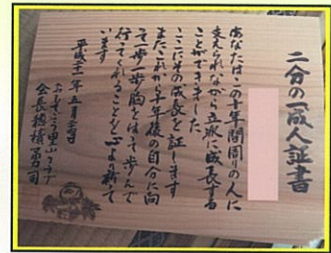 二分の一成人証書
あなたはこの十年間周りの人に
支えられながら立派に成長する
ことができました
ここにその成長を証します
またこれから十年後の自分に向
って一歩一歩胸をはって歩んで
行ってくれることを心より願って
います
平成二十一年五月三日
会長 穂積勇司